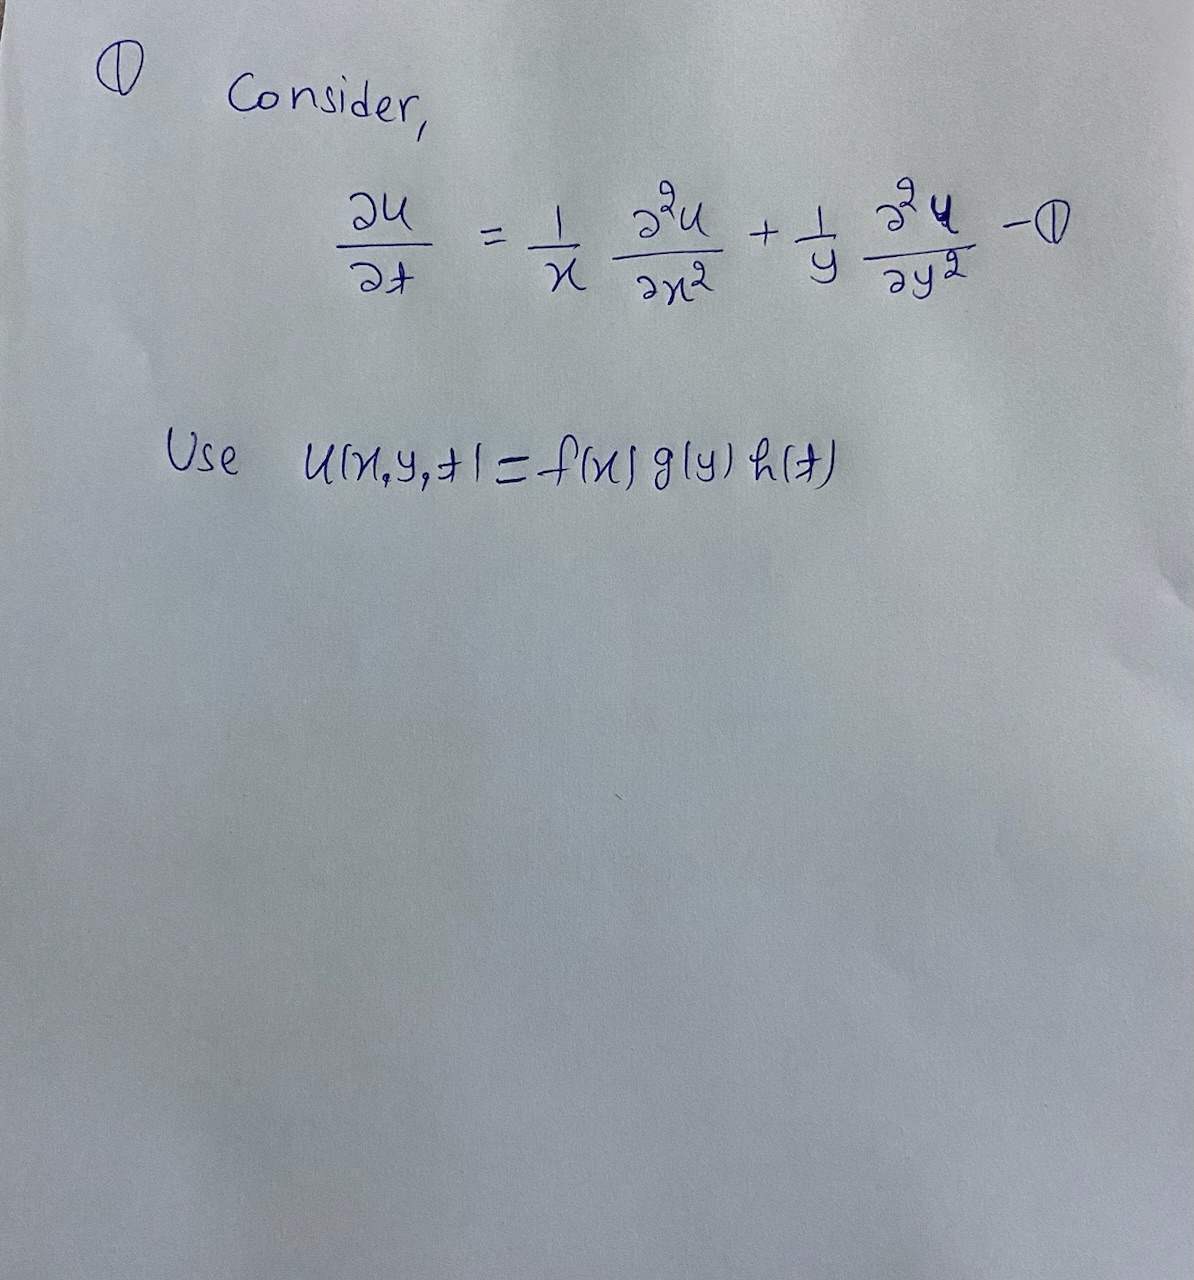 ① Consider,
∂u/∂t = 1/x ∂²u/∂x² + 1/y ∂²u/∂y² -①
Use u(x,y,t) = f(x) g(y) h(t)